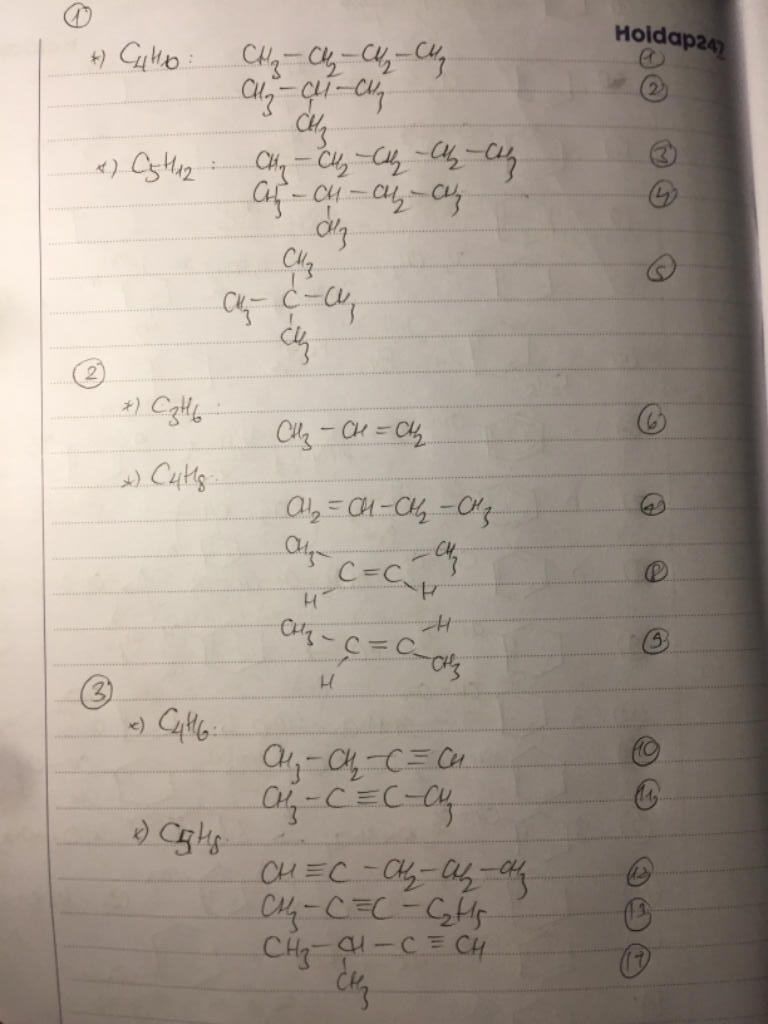 ①
Hoidap247
*) C4H10: CH3-CH2-CH2-CH3 ①
CH3-CH-CH3 ②
CH3
*) C5H12: CH3-CH2-CH2-CH2-CH3 ③
CH3-CH-CH2-CH3 ④
CH3
CH3 ⑤
CH3-C-CH3
CH3
②
*) C3H6:
CH3-CH=CH2 ⑥
*) C4H8:
CH2=CH-CH2-CH3 ⑦
CH3 CH3
C=C ⑧
H H
CH3 H
C=C ⑨
H CH3
③
*) C4H6:
CH3-CH2-C≡CH ⑩
CH3-C≡C-CH3 ⑪
*) C5H8:
CH≡C-CH2-CH2-CH3 ⑫
CH3-C≡C-C2H5 ⑬
CH3-CH-C≡CH ⑭
CH3